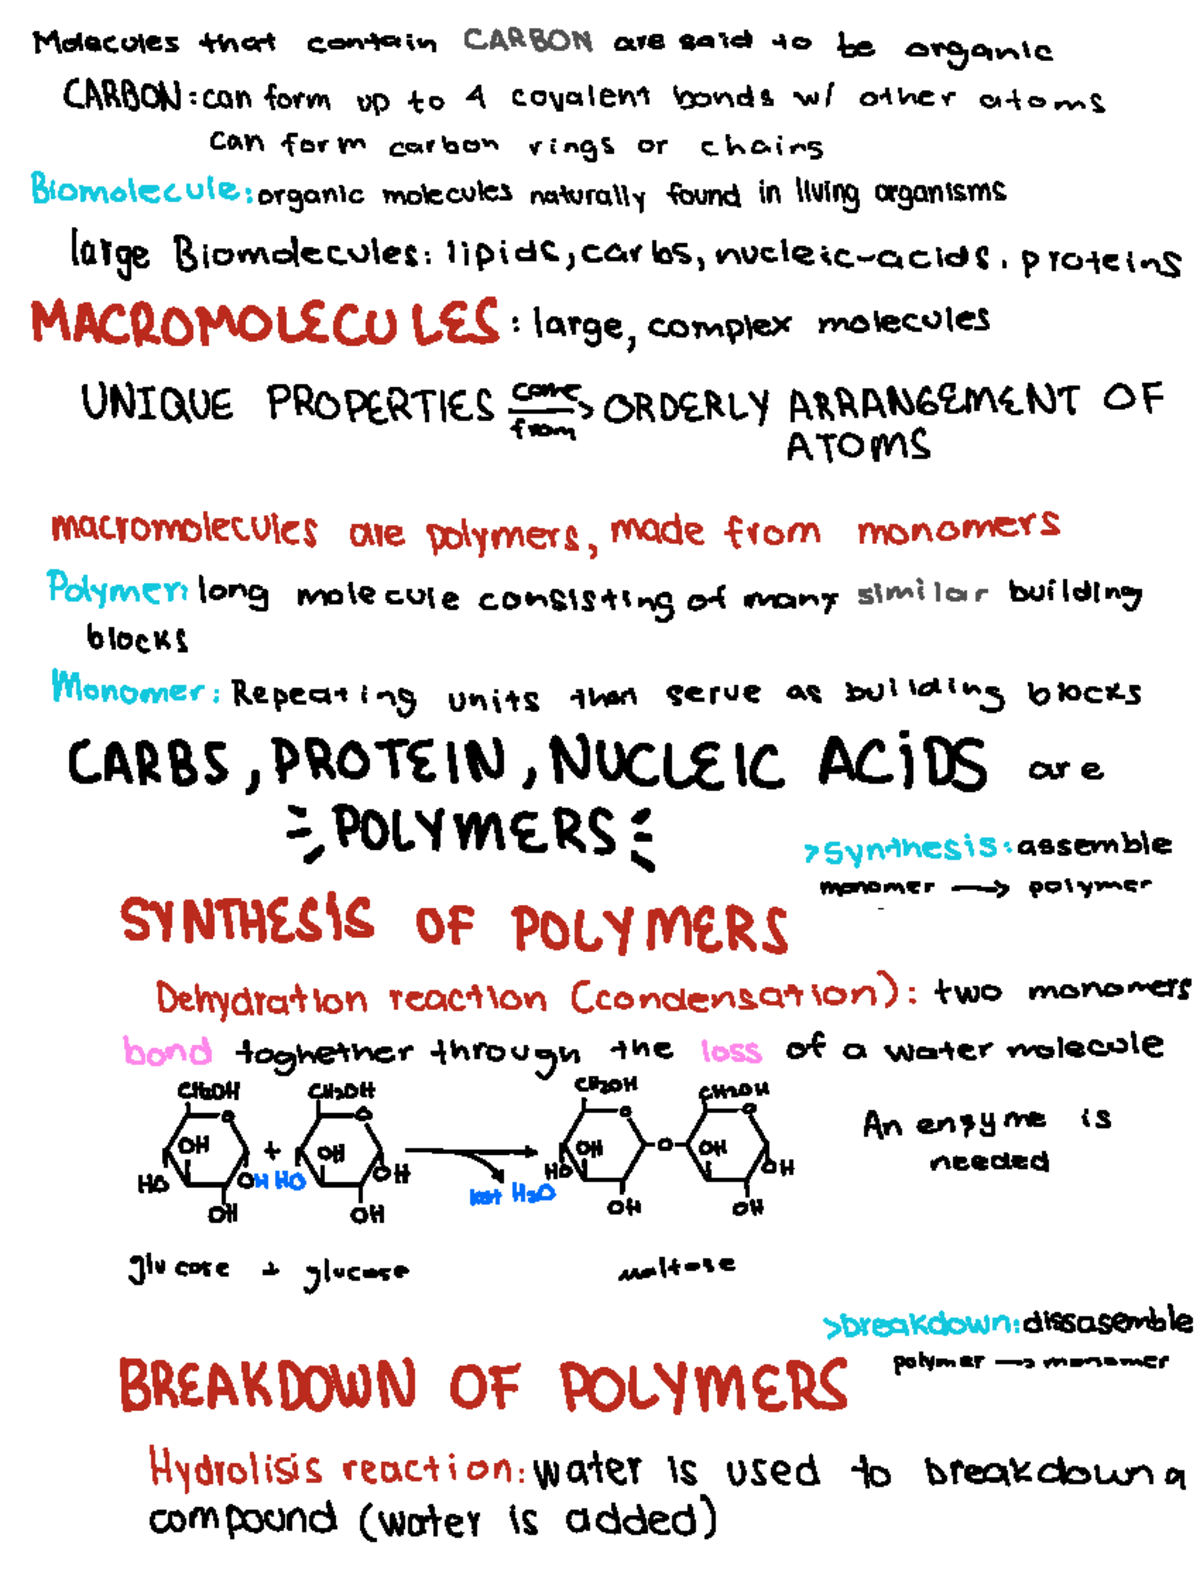 Molecules that contain CARBON are said to be organic
CARBON: can form up to 4 covalent bonds w/ other atoms
can form carbon rings or chains
Biomolecule: organic molecules naturally found in living organisms
large Biomolecules: lipids, carbs, nucleic-acids, proteins
MACROMOLECULES: large, complex molecules
UNIQUE PROPERTIES come from → ORDERLY ARRANGEMENT OF
ATOMS
macromolecules are polymers, made from monomers
Polymer: long molecule consisting of many similar building
blocks
Monomer: Repeating units that serve as building blocks
CARBS, PROTEIN, NUCLEIC ACIDS are
POLYMERS
>Synthesis: assemble
monomer → polymer
SYNTHESIS OF POLYMERS
Dehydration reaction (condensation): two monomers
bond toghether through the loss of a water molecule
CH2OH CH2OH CH2OH CH2OH
O O O O
OH + OH OH O OH
HO OH HO OH HO OH
OH OH lost H2O OH OH
An enzyme is
needed
glucose + glucose maltose
>breakdown: dissasemble
polymer → monomer
BREAKDOWN OF POLYMERS
Hydrolisis reaction: water is used to breakdown a
compound (water is added)